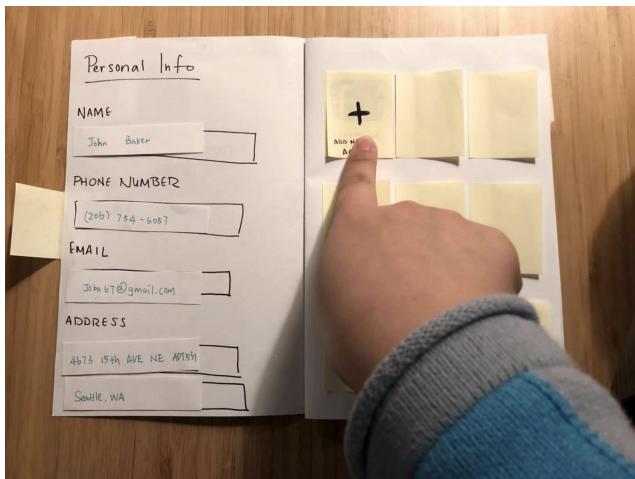 Personal Info
NAME
John Baker
PHONE NUMBER
(206) 754-6037
EMAIL
Joba67@gmail.com
ADDRESS
4673 15th AVE NE APT531
Seattle, WA
+
ADD